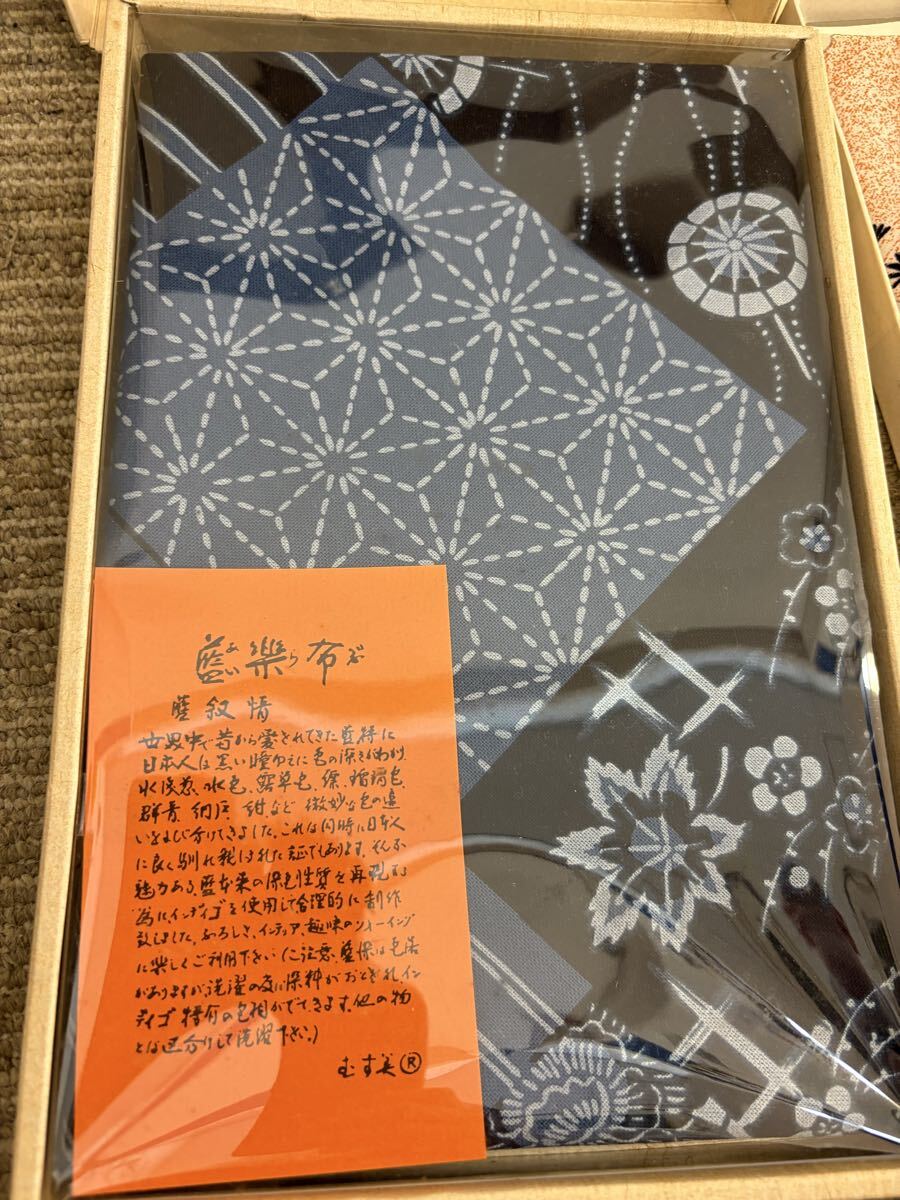 藍あい樂ら布ぶ
藍叙情
世界中で昔から愛されてきた藍特に
日本人は黒い瞳ゆえに色の深さがわかり
水浅葱、水色、露草色、縹、瑠璃色
群青、納戸、紺、など微妙な色の違
いをよび分けてきました。これは同時に日本人
に良く馴れ親しまれた証でもあります。そんな
魅力ある、藍本来の染色性質を再現する
為に、インディゴを使用して合理的に制作
致しました。ふろしき、インテリア、趣味のソーイング
に楽しくご利用下さい(ご注意、藍染は色落
がありますが、洗濯の度に染料がおとされ、イン
ディゴ特有の色相がでてきます。他の物
とは区分けして洗濯下さい。)
むす美®